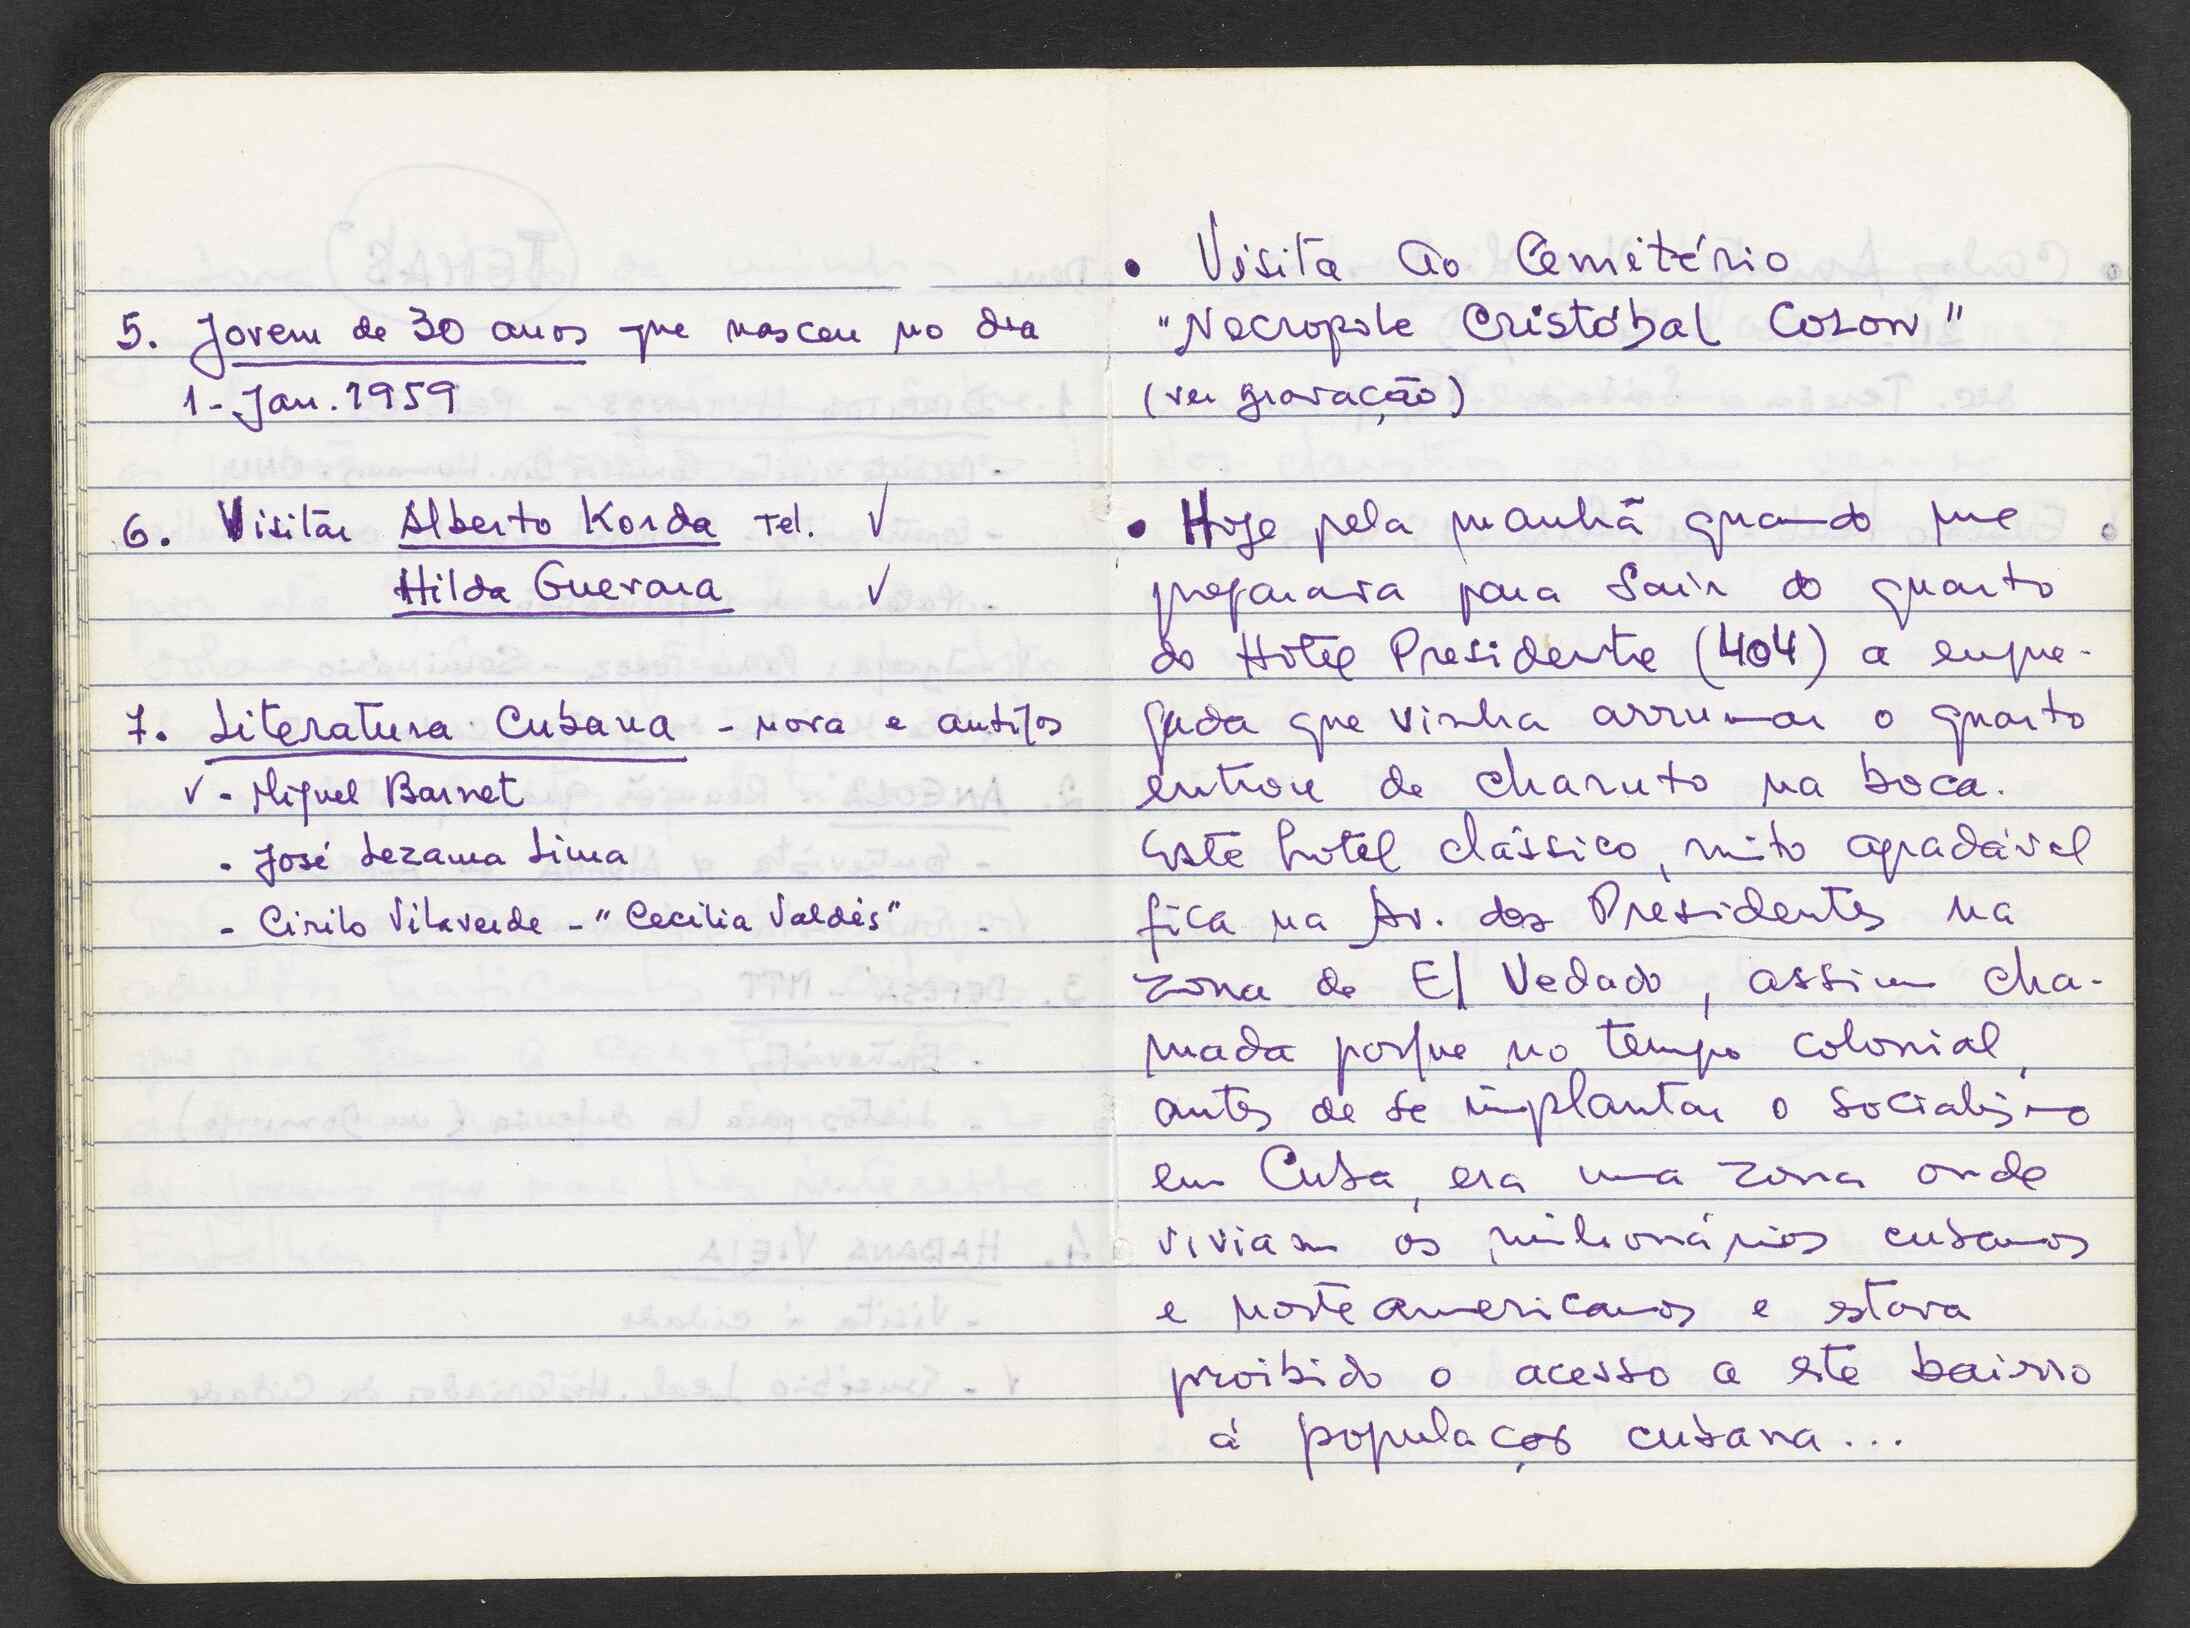 5. Jovem de 30 anos que nasceu no dia
1-Jan. 1959
6. Visitar Alberto Korda Tel. ✓
Hilda Guevara ✓
7. Literatura Cubana - nova e antiga
✓ - Miguel Barnet
- José Lezama Lima
- Cirilo Vilaverde - "Cecilia Valdés"
• Visita ao Cemitério
"Necropole Cristóbal Colon"
(ver gravação)
• Hoje pela manhã quando me
preparava para sair do quarto
do Hotel Presidente (404) a empre-
gada que vinha arrumar o quarto
entrou de charuto na boca.
Este hotel clássico, muito agradável
fica na Av. dos Presidentes na
zona de El Vedado, assim cha-
mada porque no tempo colonial,
antes de se implantar o socialismo
em Cuba, era uma zona onde
viviam os milionários cubanos
e norteamericanos e estava
proibido o acesso a este bairro
á população cubana...